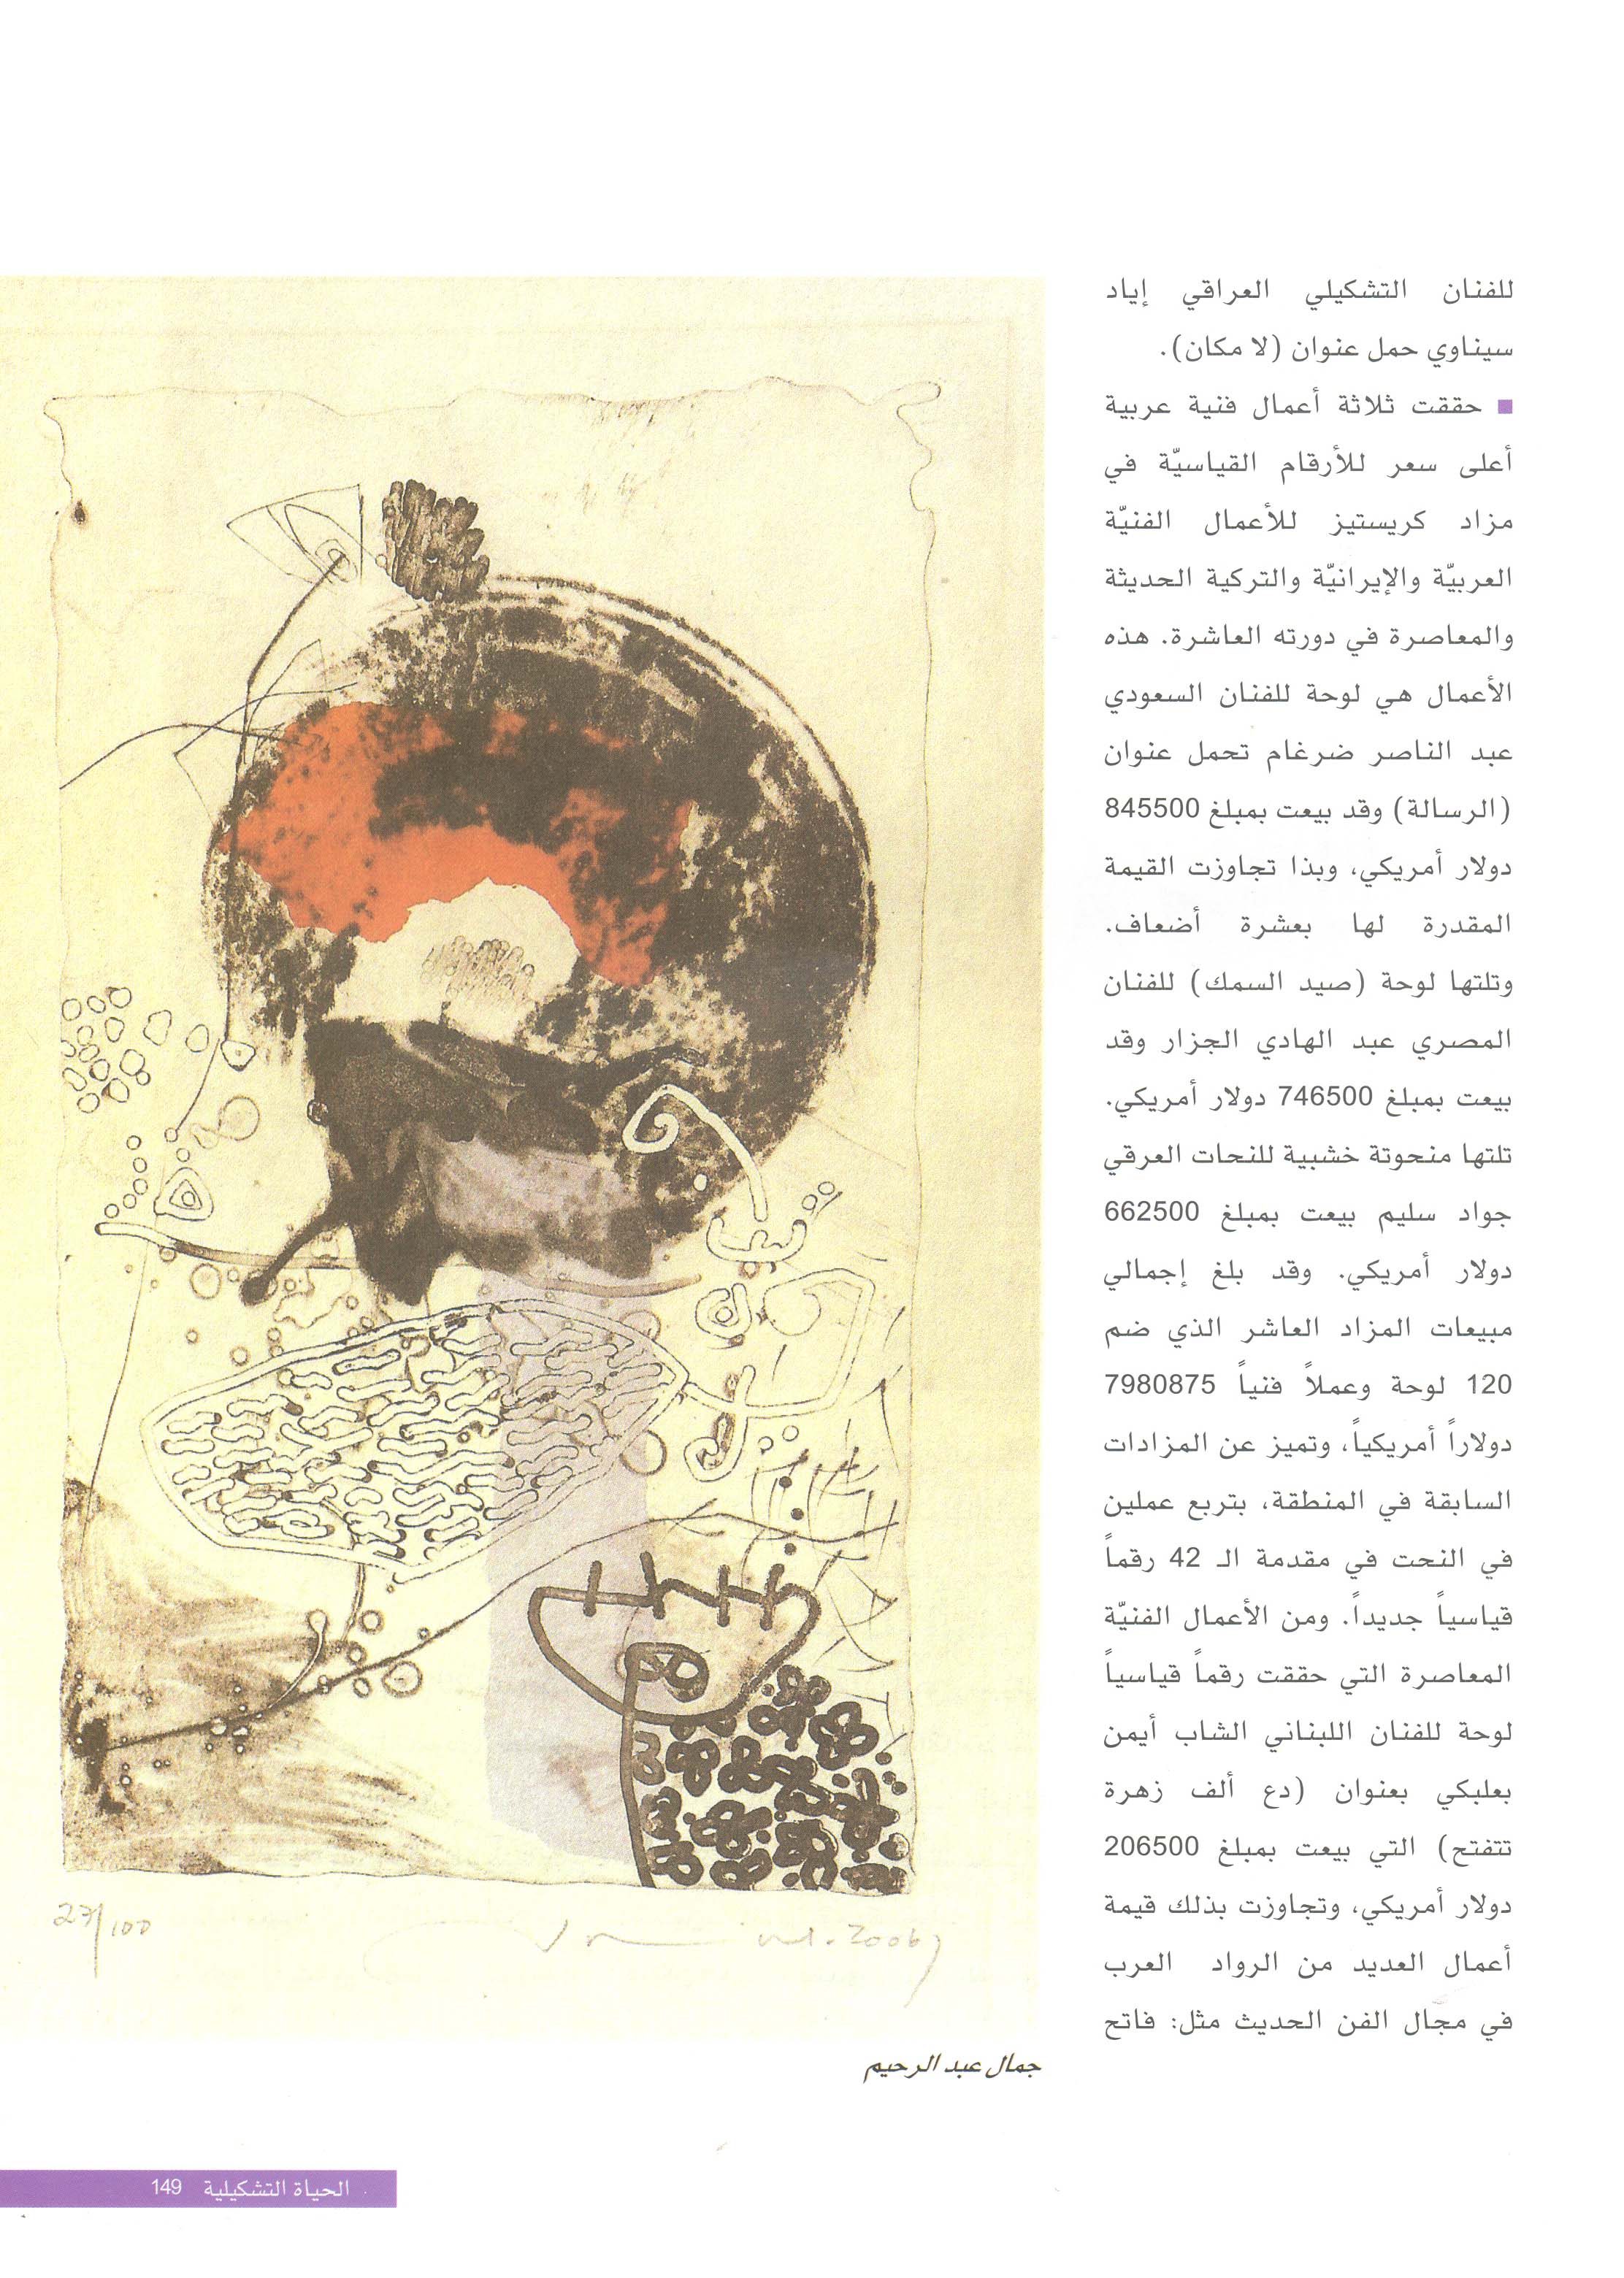 للفنان التشكيلي العراقي إياد
سيناوي حمل عنوان (لا مكان).
■ حققت ثلاثة أعمال فنية عربية
أعلى سعر للأرقام القياسيّة في
مزاد كريستيز للأعمال الفنيّة
العربيّة والإيرانيّة والتركية الحديثة
والمعاصرة في دورته العاشرة. هذه
الأعمال هي لوحة للفنان السعودي
عبد الناصر ضرغام تحمل عنوان
(الرسالة) وقد بيعت بمبلغ 845500
دولار أمريكي، وبذا تجاوزت القيمة
المقدرة لها بعشرة أضعاف.
وتلتها لوحة (صيد السمك) للفنان
المصري عبد الهادي الجزار وقد
بيعت بمبلغ 746500 دولار أمريكي.
تلتها منحوتة خشبية للنحات العرقي
جواد سليم بيعت بمبلغ 662500
دولار أمريكي. وقد بلغ إجمالي
مبيعات المزاد العاشر الذي ضم
120 لوحة وعملاً فنياً 7980875
دولاراً أمريكياً، وتميز عن المزادات
السابقة في المنطقة، بتربع عملين
في النحت في مقدمة الـ 42 رقماً
قياسياً جديداً. ومن الأعمال الفنيّة
المعاصرة التي حققت رقماً قياسياً
لوحة للفنان اللبناني الشاب أيمن
بعلبكي بعنوان (دع ألف زهرة
تتفتح) التي بيعت بمبلغ 206500
دولار أمريكي، وتجاوزت بذلك قيمة
أعمال العديد من الرواد العرب
في مجال الفن الحديث مثل: فاتح
27/100
2006
جمال عبد الرحيم
الحياة التشكيلية 149